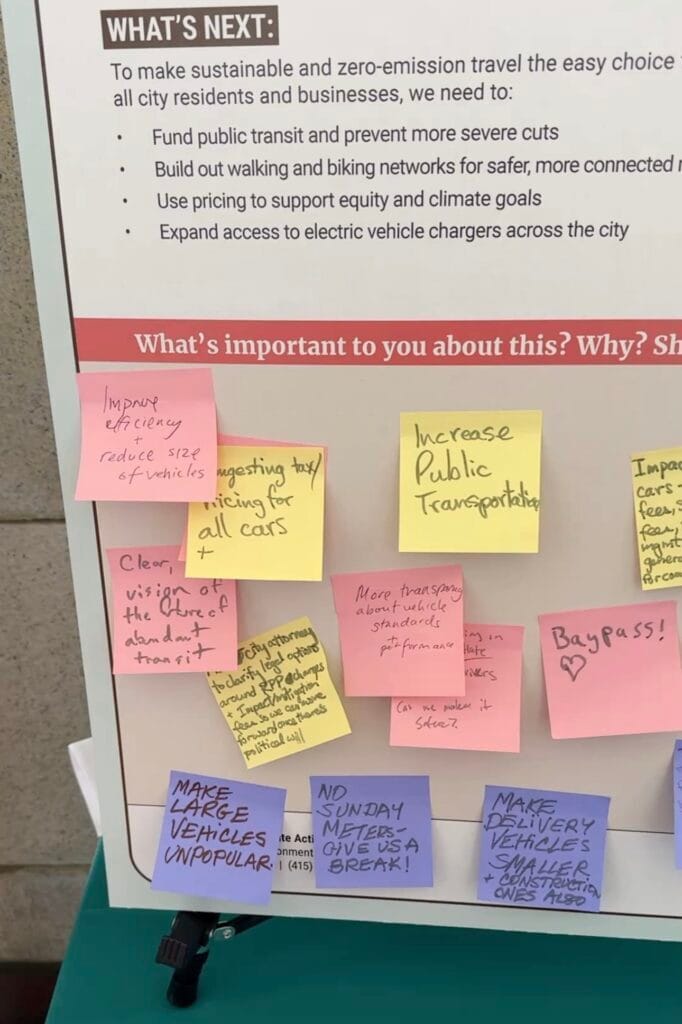 WHAT'S NEXT:
To make sustainable and zero-emission travel the easy choice
all city residents and businesses, we need to:
• Fund public transit and prevent more severe cuts
• Build out walking and biking networks for safer, more connected
• Use pricing to support equity and climate goals
• Expand access to electric vehicle chargers across the city
What's important to you about this? Why? Sh
Improve
efficiency
+
reduce size
of vehicles
ngesting tax/
ricing for
all cars
+
Increase
Public
Transportation
Impac
cars-
fees,
fees,
mgmt
genera
for com
Clear,
vision of
the future of
abundant
transit
city attorney
to clarify legal options
around RPP charges
+ Impact/mitigation
fees so we can move
forward once there's
political will
More transparency
about vehicle
standards
+
performance
ing in
Can we make it
safer?
Baypass!
♡
MAKE
LARGE
VEHICLES
UNPOPULAR.
NO
SUNDAY
METERS-
GIVE US A
BREAK!
MAKE
DELIVERY
VEHICLES
SMALLER
+ CONSTRUCTION
ONES ALSO
te Acti
onment
| (415)